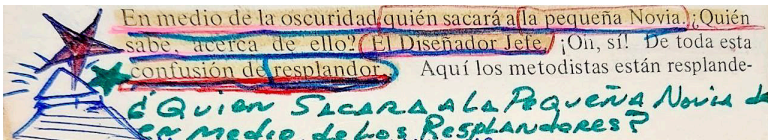 En medio de la oscuridad quién sacará a la pequeña Novia. ¿Quién
sabe, acerca de ello? El Diseñador Jefe. ¡Oh, sí! De toda esta
confusión de resplandor. Aquí los metodistas están resplande-
¿Quien SACARA A LA Pequeña Novia de
en medio de los Resplandores?